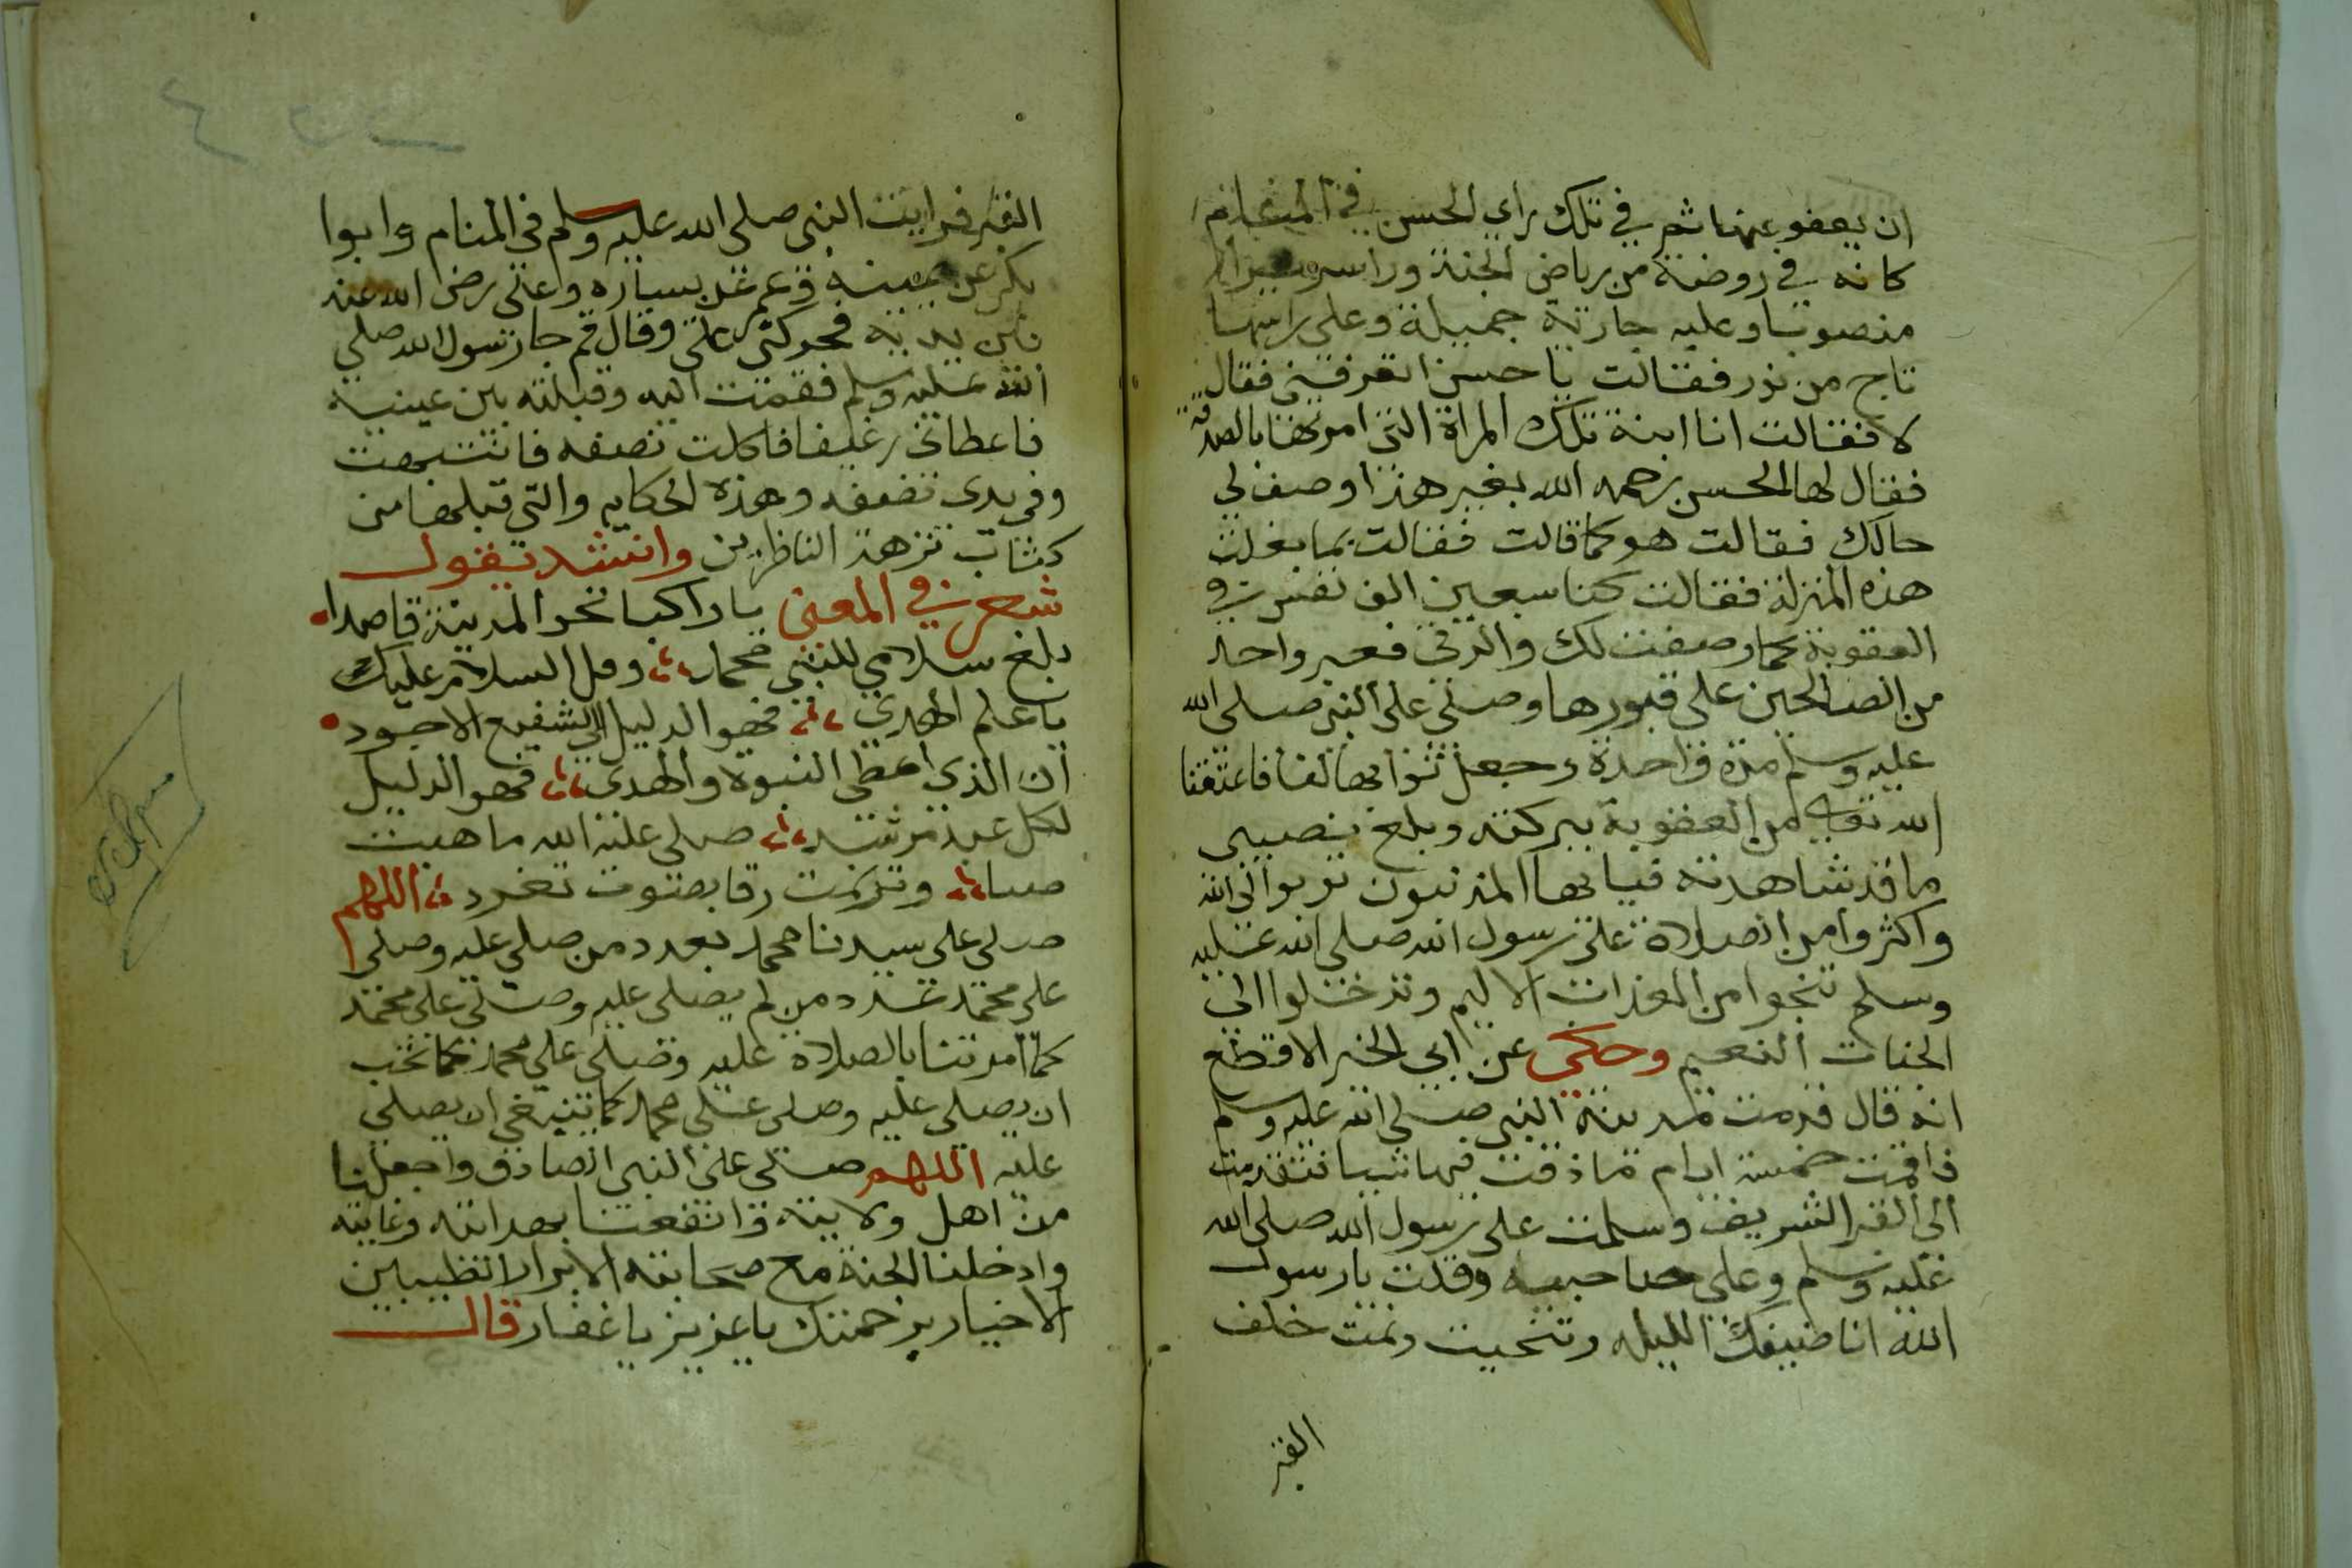 ان يعفو عنها ثم في تلك راي الحسن في المنام
كانه في روضة من رياض الجنة وراى سريرا
منصوبا وعليه جارية جميلة وعلى راسها
تاج من نور فقالت يا حسن اتعرفني فقال
لا فقالت انا ابنة تلك المراة التي امرتها بالصلاة
فقال لها الحسن رحمه الله بغير هذا وصف لي
حالك فقالت هو كما قالت فقالت بما بغلت
هذه المنزلة فقالت كنا سبعين الف نفس في
العقوبة كما وصفت لك والدتي فعبر واحد
من الصالحين على قبورها وصلى على النبي صلى الله
عليه وسلم مرة واحدة وجعل ثوابها لنا فاعتقنا
الله تعالى من العقوبة ببركته وبلغ نصيبي
ما قد شاهدته فيا ايها المذنبون توبوا الى الله
واكثروا من الصلاة على رسول الله صلى الله عليه
وسلم تنجوا من العذاب الاليم وتدخلوا الى
الجنات النعيم وحكى عن ابي الخير الاقطع
انه قال قدمت مدينة النبي صلى الله عليه وسلم
فاقمت خمسة ايام ما ذقت فيها شيا فتقدمت
الى القبر الشريف وسلمت على رسول الله صلى الله
عليه وسلم وعلى صاحبيه وقلت يا رسول
الله انا ضيفك الليله وتنحيت ونمت خلف
القبر
القبر فرايت النبي صلى الله عليه وسلم في المنام وابوا
بكر عن يمينه وعمر عن يساره وعلى رضى الله عنه
بين يديه فحركني على وقال قم جا رسول الله صلى
الله عليه وسلم فقمت اليه وقبلته بين عينيه
فاعطاني رغيفا فاكلت نصفه فانتبهت
وفي يدى نصفه وهذه الحكايه والتي قبلها من
كتاب نزهة الناظرين وانشد يقول
شعر في المعنى يا راكبا نحو المدينة قاصدا
بلغ سلامي للنبي محمد وقل السلام عليك
يا علم الهدي فهو الدليل الى الشفيع الاجود
ان الذي اعطى النبوة والهدى فهو الدليل
لكل عبد مرشد صلى عليه الله ما هبت
صبا وترنمت رقا بصوت تغرد اللهم
صلى على سيدنا محمد بعدد من صلى عليه وصلى
على محمد بعدد من لم يصلى عليه وصلى على محمد
كما امرتنا بالصلاة عليه وصلى على محمد كما تحب
ان يصلى عليه وصلى على محمد كما تنبغي ان يصلى
عليه اللهم صلى على النبي الصادق واجعلنا
من اهل ولايته وانفعنا بهدايته وعايته
وادخلنا الجنة مع صحابته الابرار الطيبين
الاخيار برحمتك يا عزيز يا غفار قال